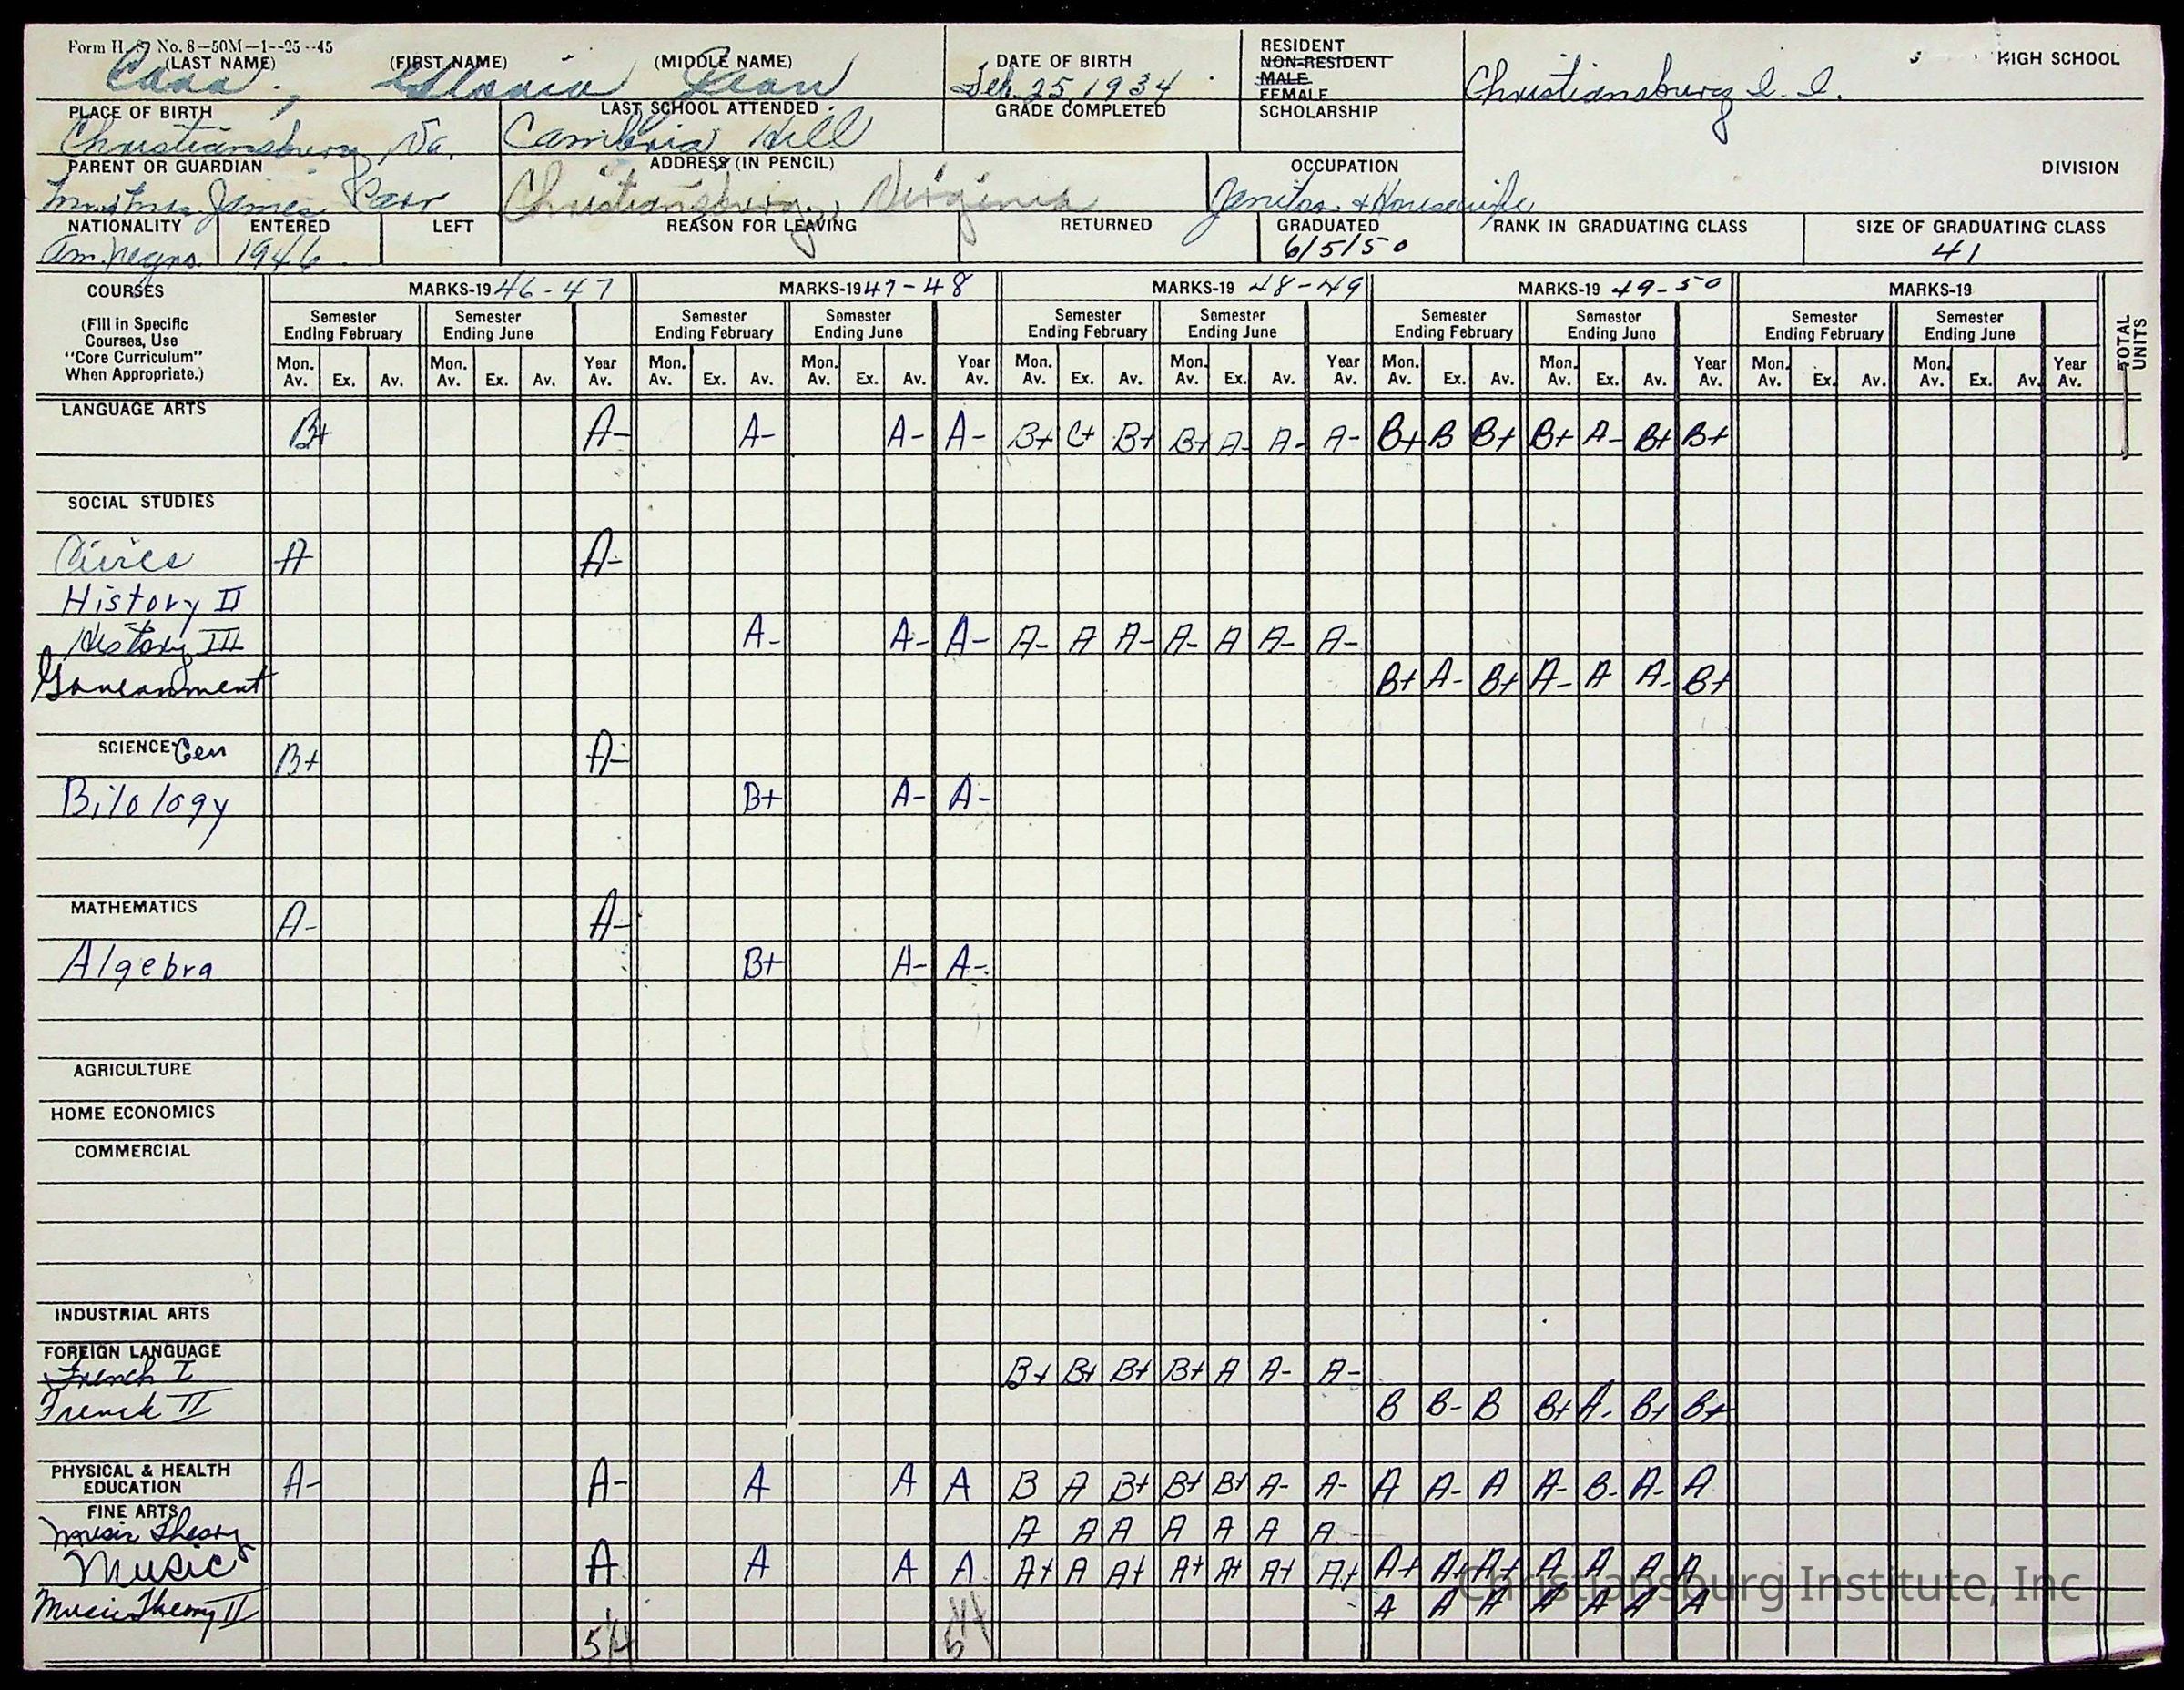 Form H. S. No. 8—50M—1--25--45
(LAST NAME) (FIRST NAME) (MIDDLE NAME) DATE OF BIRTH RESIDENT HIGH SCHOOL
NON-RESIDENT
MALE
FEMALE
Jean Feb. 25, 1934 Christiansburg I. I.
PLACE OF BIRTH LAST SCHOOL ATTENDED GRADE COMPLETED SCHOLARSHIP
Christiansburg, Va. Cambria Hill
PARENT OR GUARDIAN ADDRESS (IN PENCIL) OCCUPATION DIVISION
Mr & Mrs James Carr Christiansburg, Virginia Janitor & Housewife
NATIONALITY ENTERED LEFT REASON FOR LEAVING RETURNED GRADUATED RANK IN GRADUATING CLASS SIZE OF GRADUATING CLASS
Am. Negro 1946 6/5/50 41
COURSES MARKS-1946-47 MARKS-1947-48 MARKS-19 48-49 MARKS-19 49-50 MARKS-19 TOTAL UNITS
(Fill in Specific Courses, Use "Core Curriculum" When Appropriate.)
Semester Ending February Semester Ending June Semester Ending February Semester Ending June Semester Ending February Semester Ending June Semester Ending February Semester Ending June Semester Ending February Semester Ending June
Mon. Av. Ex. Av. Mon. Av. Ex. Av. Year Av. Mon. Av. Ex. Av. Mon. Av. Ex. Av. Year Av. Mon. Av. Ex. Av. Mon. Av. Ex. Av. Year Av. Mon. Av. Ex. Av. Mon. Av. Ex. Av. Year Av. Mon. Av. Ex. Av. Mon. Av. Ex. Av. Year Av.
LANGUAGE ARTS B+ A- A- A- A- B+ C+ B+ B+ A- A- A- B+ B B+ B+ A- B+ B+
SOCIAL STUDIES
Civics A A-
History II
History III A- A- A- A- A A- A- A A- A-
Government B+ A- B+ A- A A- B+
SCIENCE Gen B+ A-
Bilology B+ A- A-
MATHEMATICS A- A-
Algebra B+ A- A-
AGRICULTURE
HOME ECONOMICS
COMMERCIAL
INDUSTRIAL ARTS
FOREIGN LANGUAGE
French I B+ B+ B+ B+ A A- A-
French II B B- B B+ A- B+ B+
PHYSICAL & HEALTH EDUCATION A- A- A A A B A B+ B+ B+ A- A- A A- A A- B- A- A
FINE ARTS
Music Theory A A A A A A A
Music A A A A A+ A A+ A+ A+ A+ A+ A+ A+ A+ A A A A
Music Theory II A A A A A A A
Christiansburg Institute, Inc